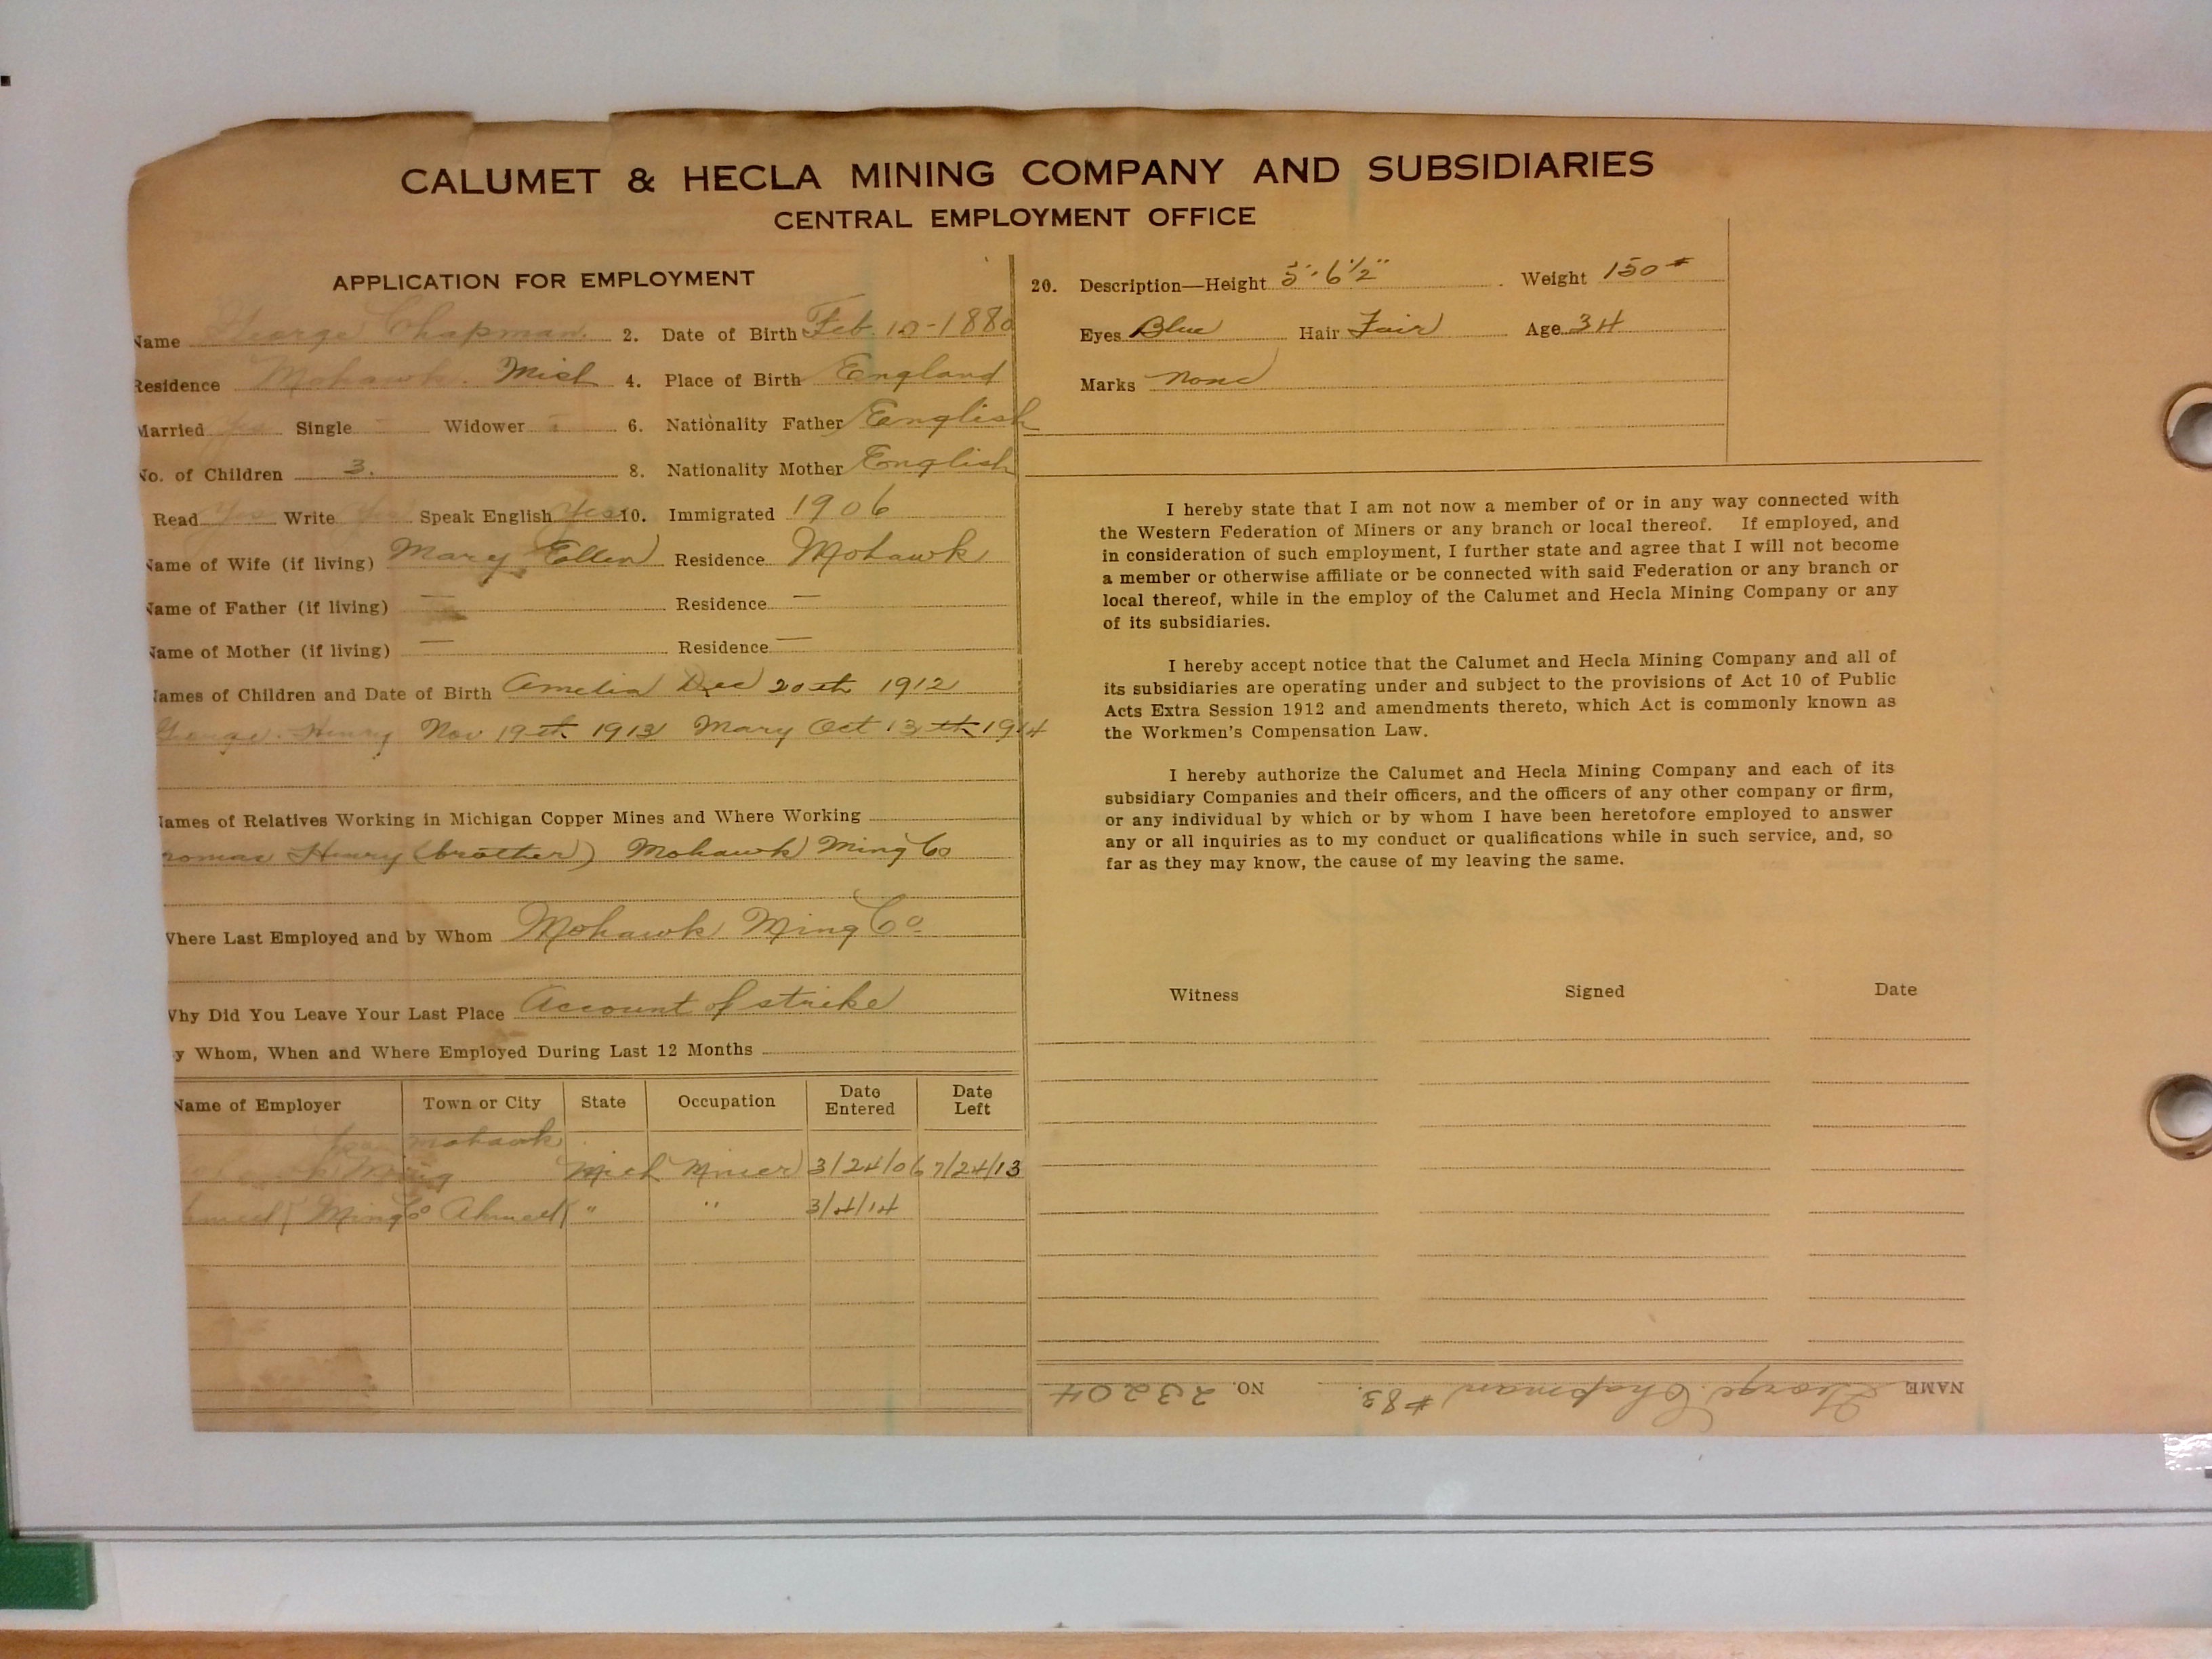 CALUMET & HECLA MINING COMPANY AND SUBSIDIARIES
CENTRAL EMPLOYMENT OFFICE
APPLICATION FOR EMPLOYMENT
Name George Chapman. 2. Date of Birth Feb. 10-1880
Residence Mohawk. Mich 4. Place of Birth England
Married Yes Single - Widower - 6. Nationality Father English
No. of Children 3. 8. Nationality Mother English
Read Yes Write Yes Speak English Yes 10. Immigrated 1906
Name of Wife (if living) Mary Ellen Residence Mohawk
Name of Father (if living) — Residence —
Name of Mother (if living) — Residence —
Names of Children and Date of Birth Amelia Dec 20th 1912
George Henry Nov 19th 1913 Mary Oct 13th 1914
Names of Relatives Working in Michigan Copper Mines and Where Working
homas Henry (brother) Mohawk Ming Co
Where Last Employed and by Whom Mohawk Ming Co
Why Did You Leave Your Last Place Account of strike
y Whom, When and Where Employed During Last 12 Months
Name of Employer Town or City State Occupation Date Entered Date Left
Mohawk
Ming Mich Miner 3/24/06 7/24/13
Ming Co Ahmeek " " 3/4/14
20. Description—Height 5' 6 1/2" Weight 150#
Eyes Blue Hair Fair Age 34
Marks None
I hereby state that I am not now a member of or in any way connected with
the Western Federation of Miners or any branch or local thereof. If employed, and
in consideration of such employment, I further state and agree that I will not become
a member or otherwise affiliate or be connected with said Federation or any branch or
local thereof, while in the employ of the Calumet and Hecla Mining Company or any
of its subsidiaries.
I hereby accept notice that the Calumet and Hecla Mining Company and all of
its subsidiaries are operating under and subject to the provisions of Act 10 of Public
Acts Extra Session 1912 and amendments thereto, which Act is commonly known as
the Workmen's Compensation Law.
I hereby authorize the Calumet and Hecla Mining Company and each of its
subsidiary Companies and their officers, and the officers of any other company or firm,
or any individual by which or by whom I have been heretofore employed to answer
any or all inquiries as to my conduct or qualifications while in such service, and, so
far as they may know, the cause of my leaving the same.
Witness Signed Date
NAME George Chapman #83. NO. 23204